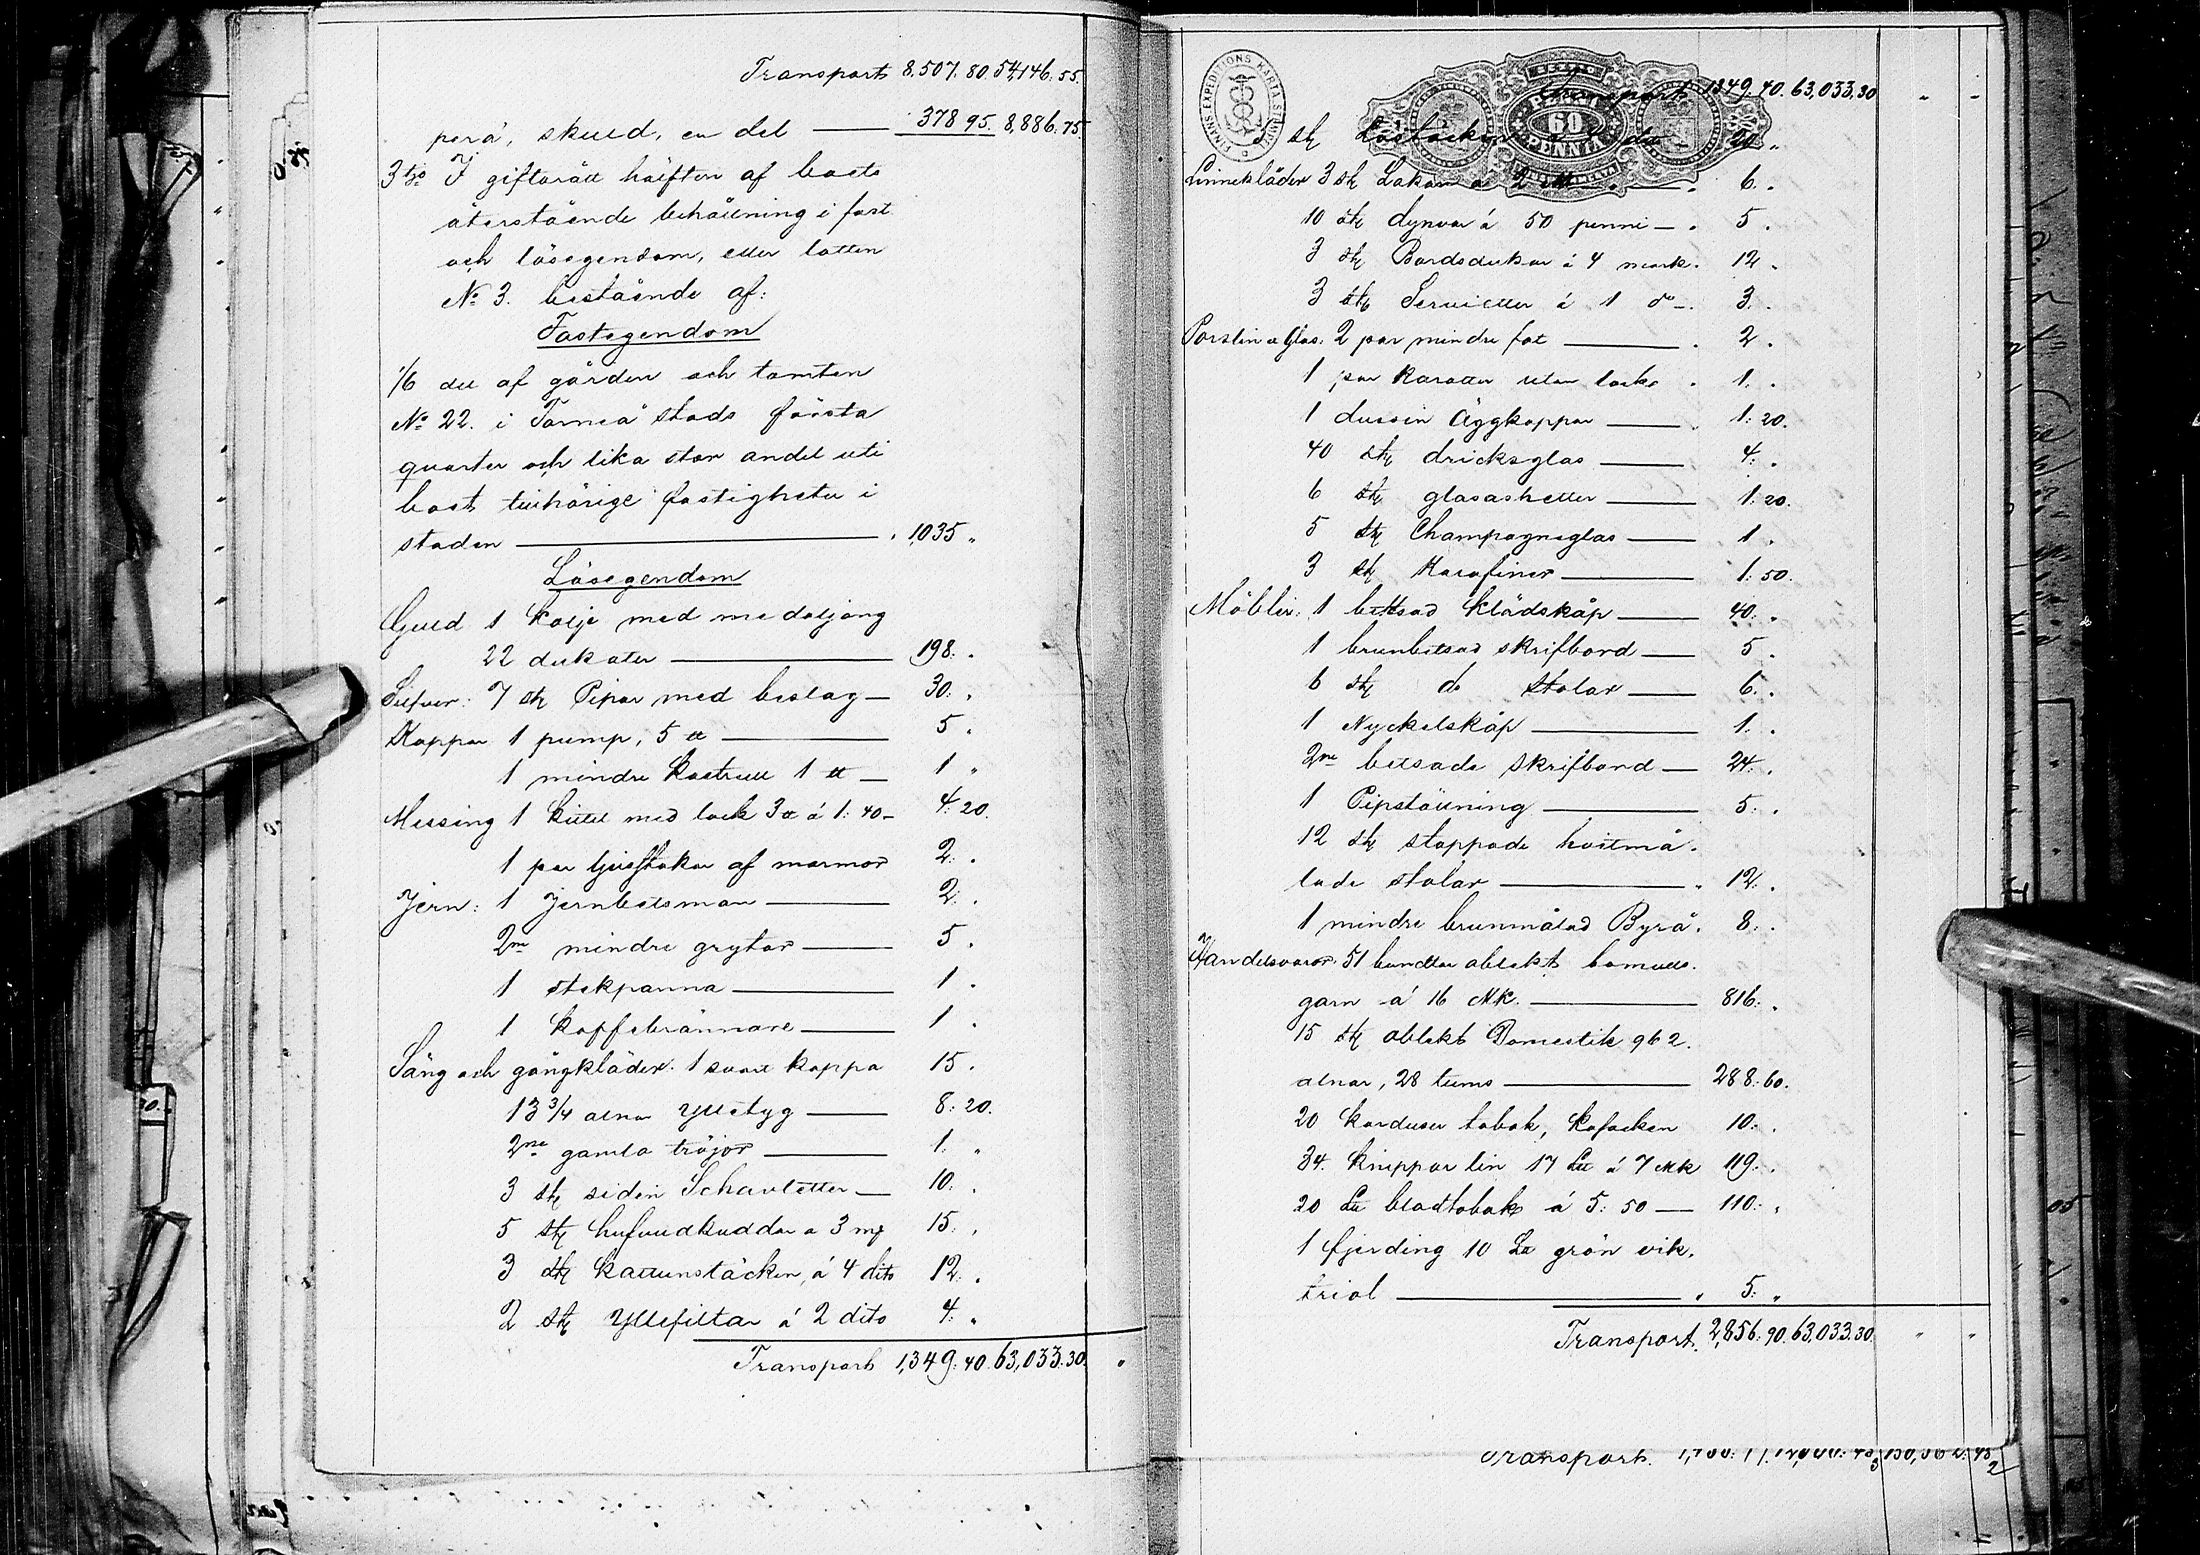 Transport 8,507. 80. 54,146. 55.
perå, skuld, en del — 378 95. 8,886. 75.
3tjo I giftorätt hälften af boets
återstående behållning i fast
och lösegendom, eller lotten
No 3. bestående af:
Fastegendom
1/6 del af gården och tomten
No 22. i Torneå stads första
quarter och lika stor andel uti
boet tillhörige fastigheter i
staden — 1,035 "
Lösegendom
Guld 1 kolje med medaljong
22 dukater — 198: "
Silfver: 7 stk Pipor med beslag — 30. "
Koppar 1 pump, 5 ℔ — 5 "
1 mindre kastrull 1 ℔ — 1 "
Messing 1 kittel med lock 3 ℔ á 1: 40 — 4: 20.
1 par ljusstakar af marmor 2: "
Jern: 1 Jernbetsman — 2: "
2ne mindre grytor — 5. "
1 stekpanna — 1 "
1 kaffebrännare — 1 "
Säng och gångkläder: 1 svart kappa 15. "
13 3/4 alnar Ylletyg — 8: 20.
2ne gamla tröjor — 1: "
3 stk siden Schauletter — 10: "
5 stk hufvudkuddar a 3 mk 15: "
3 stk kattunstäcken, á 4 dito 12: "
2 stk Yllefiltar á 2 dito 4: "
Transport 1,349: 40. 63,033: 30. "
FINANS EXPEDITIONS KARTA SIGILLATA
60 PENNIÄ
Transport 1349. 40. 63,033. 30 " "
stk 20 "
Linnekläder 3 stk Lakan a 2 — 6. "
10 stk dynvar á 50 penni — 5 "
3 stk Bordsdukar á 4 mark. 12 "
3 stk Servietter á 1 do — 3. "
Porslin o Glas: 2 par mindre fat — 2 "
1 par karotter utan lock 1. "
1 dussin Äggkoppar — 1: 20.
40 stk dricksglas — 4: "
6 stk glasashietter — 1: 20.
5 stk Champagneglas — 1 "
3 stk Karafiner — 1: 50.
Möbler: 1 betsad klädskåp — 40: "
1 brunbetsad skrifbord — 5 "
6 stk do stolar — 6: "
1 Nyckelskåp — 1: "
2ne betsade skrifbord — 24: "
1 Pipställning — 5: "
12 stk stoppade hvitmå-
lade stolar — 12: "
1 mindre brunmålad Byrå. 8: "
Handelsvaror: 51 bundtar oblekt bomulls-
garn á 16 Mk. — 816: "
15 stk oblekt Domestik 962.
alnar, 28 tums — 288: 60.
20 karduser tobak, 10: "
34. knippor lin 17 L℔ á 7 Mk 119: "
20 L℔ bladtobak á 5: 50 — 110: "
1 fjerding 10 L℔ grön vik-
triol — 5: "
Transport. 2,856: 90. 63,033: 30. " "
Transport.